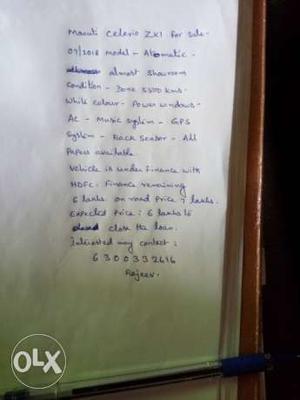 Maruti Celerio ZXI for Sale -
07/2018 model - Automatic -
almost Showroom
Condition - Done 5500 kms -
White colour - Power windows -
AC - Music System - GPS
System - Back Sensor - All
Papers available.
Vehicle is under finance with
HDFC. Finance remaining
6 lakhs. on road price 7 lakhs.
Expected Price: 6 lakhs to
close the loan.
Interested may contact:
6300332616
Rajeev.
OLX